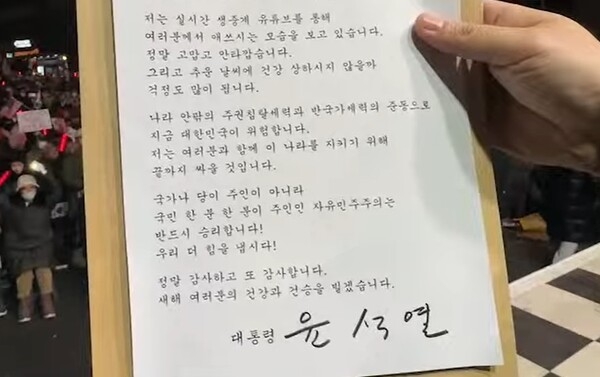 저는 실시간 생중계 유튜브를 통해
여러분께서 애쓰시는 모습을 보고 있습니다.
정말 고맙고 안타깝습니다.
그리고 추운 날씨에 건강 상하시지 않을까
걱정도 많이 됩니다.
나라 안팎의 주권침탈세력과 반국가세력의 준동으로
지금 대한민국이 위험합니다.
저는 여러분과 함께 이 나라를 지키기 위해
끝까지 싸울 것입니다.
국가나 당이 주인이 아니라
국민 한 분 한 분이 주인인 자유민주주의는
반드시 승리합니다!
우리 더 힘을 냅시다!
정말 감사하고 또 감사합니다.
새해 여러분의 건강과 건승을 빌겠습니다.
대통령 윤석열